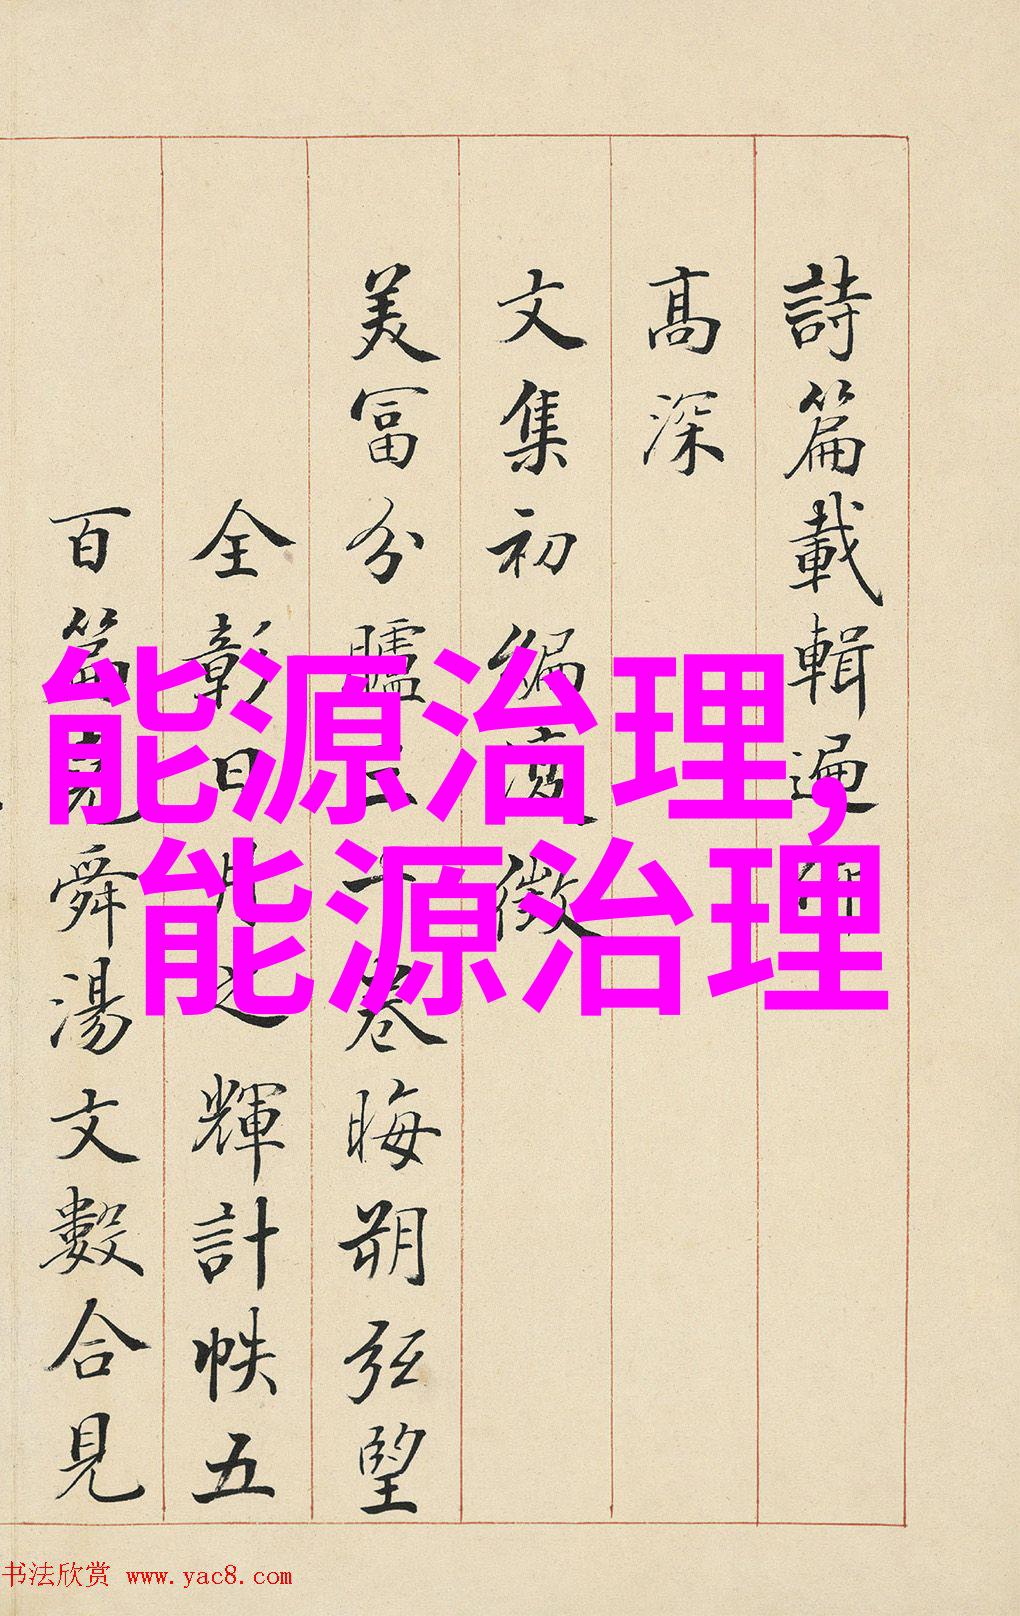 詩篇載輯遍
高深
文集初編演徵
美富分臚二十卷晦朔弦望
全彰日月之輝計帙五
百篇見舜湯文數合見
能源治理,
能源治理
书法欣赏 www.yac8.com